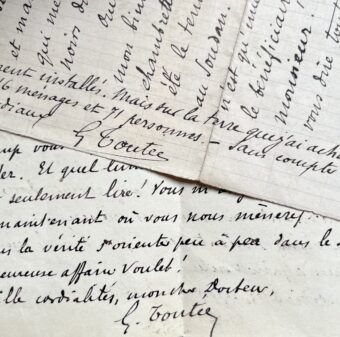 et ma
qui me
noirs d
ou
mon bin
chambrett
été le ter
au Soudan
n'est qu'une
le bénéficiai
monsieur !
vous dire tou
ment installés. Mais sur la terre que j'ai ache
6 ménages et 71 personnes. – Sans compte
rdiaux
G Toutée
up vous
ler. Et quel
seulement lire ! Vous m'a
maintenant où vous nous mènerez.
la vérité s'oriente peu à peu dans le
eureuse affaire Voulet !
ille cordialités, mon cher Docteur,
G. Toutée